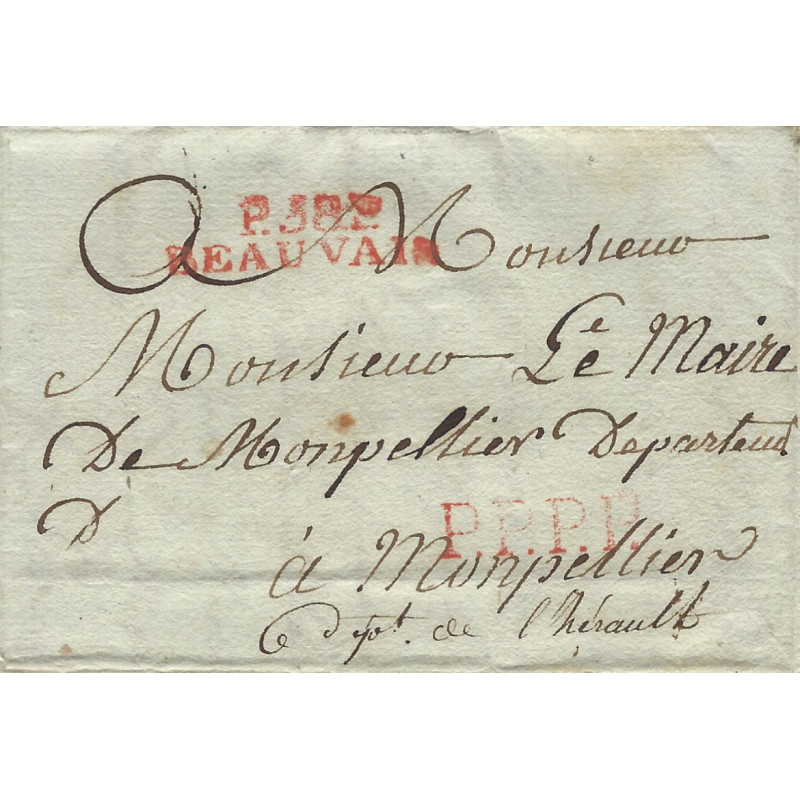 P.58.P
BEAUVAIS
A Monsieur
Monsieur Le Maire
De Monpellier Departem
D
P.P.P.P.
à Monpellier
Dept. de l'hérault